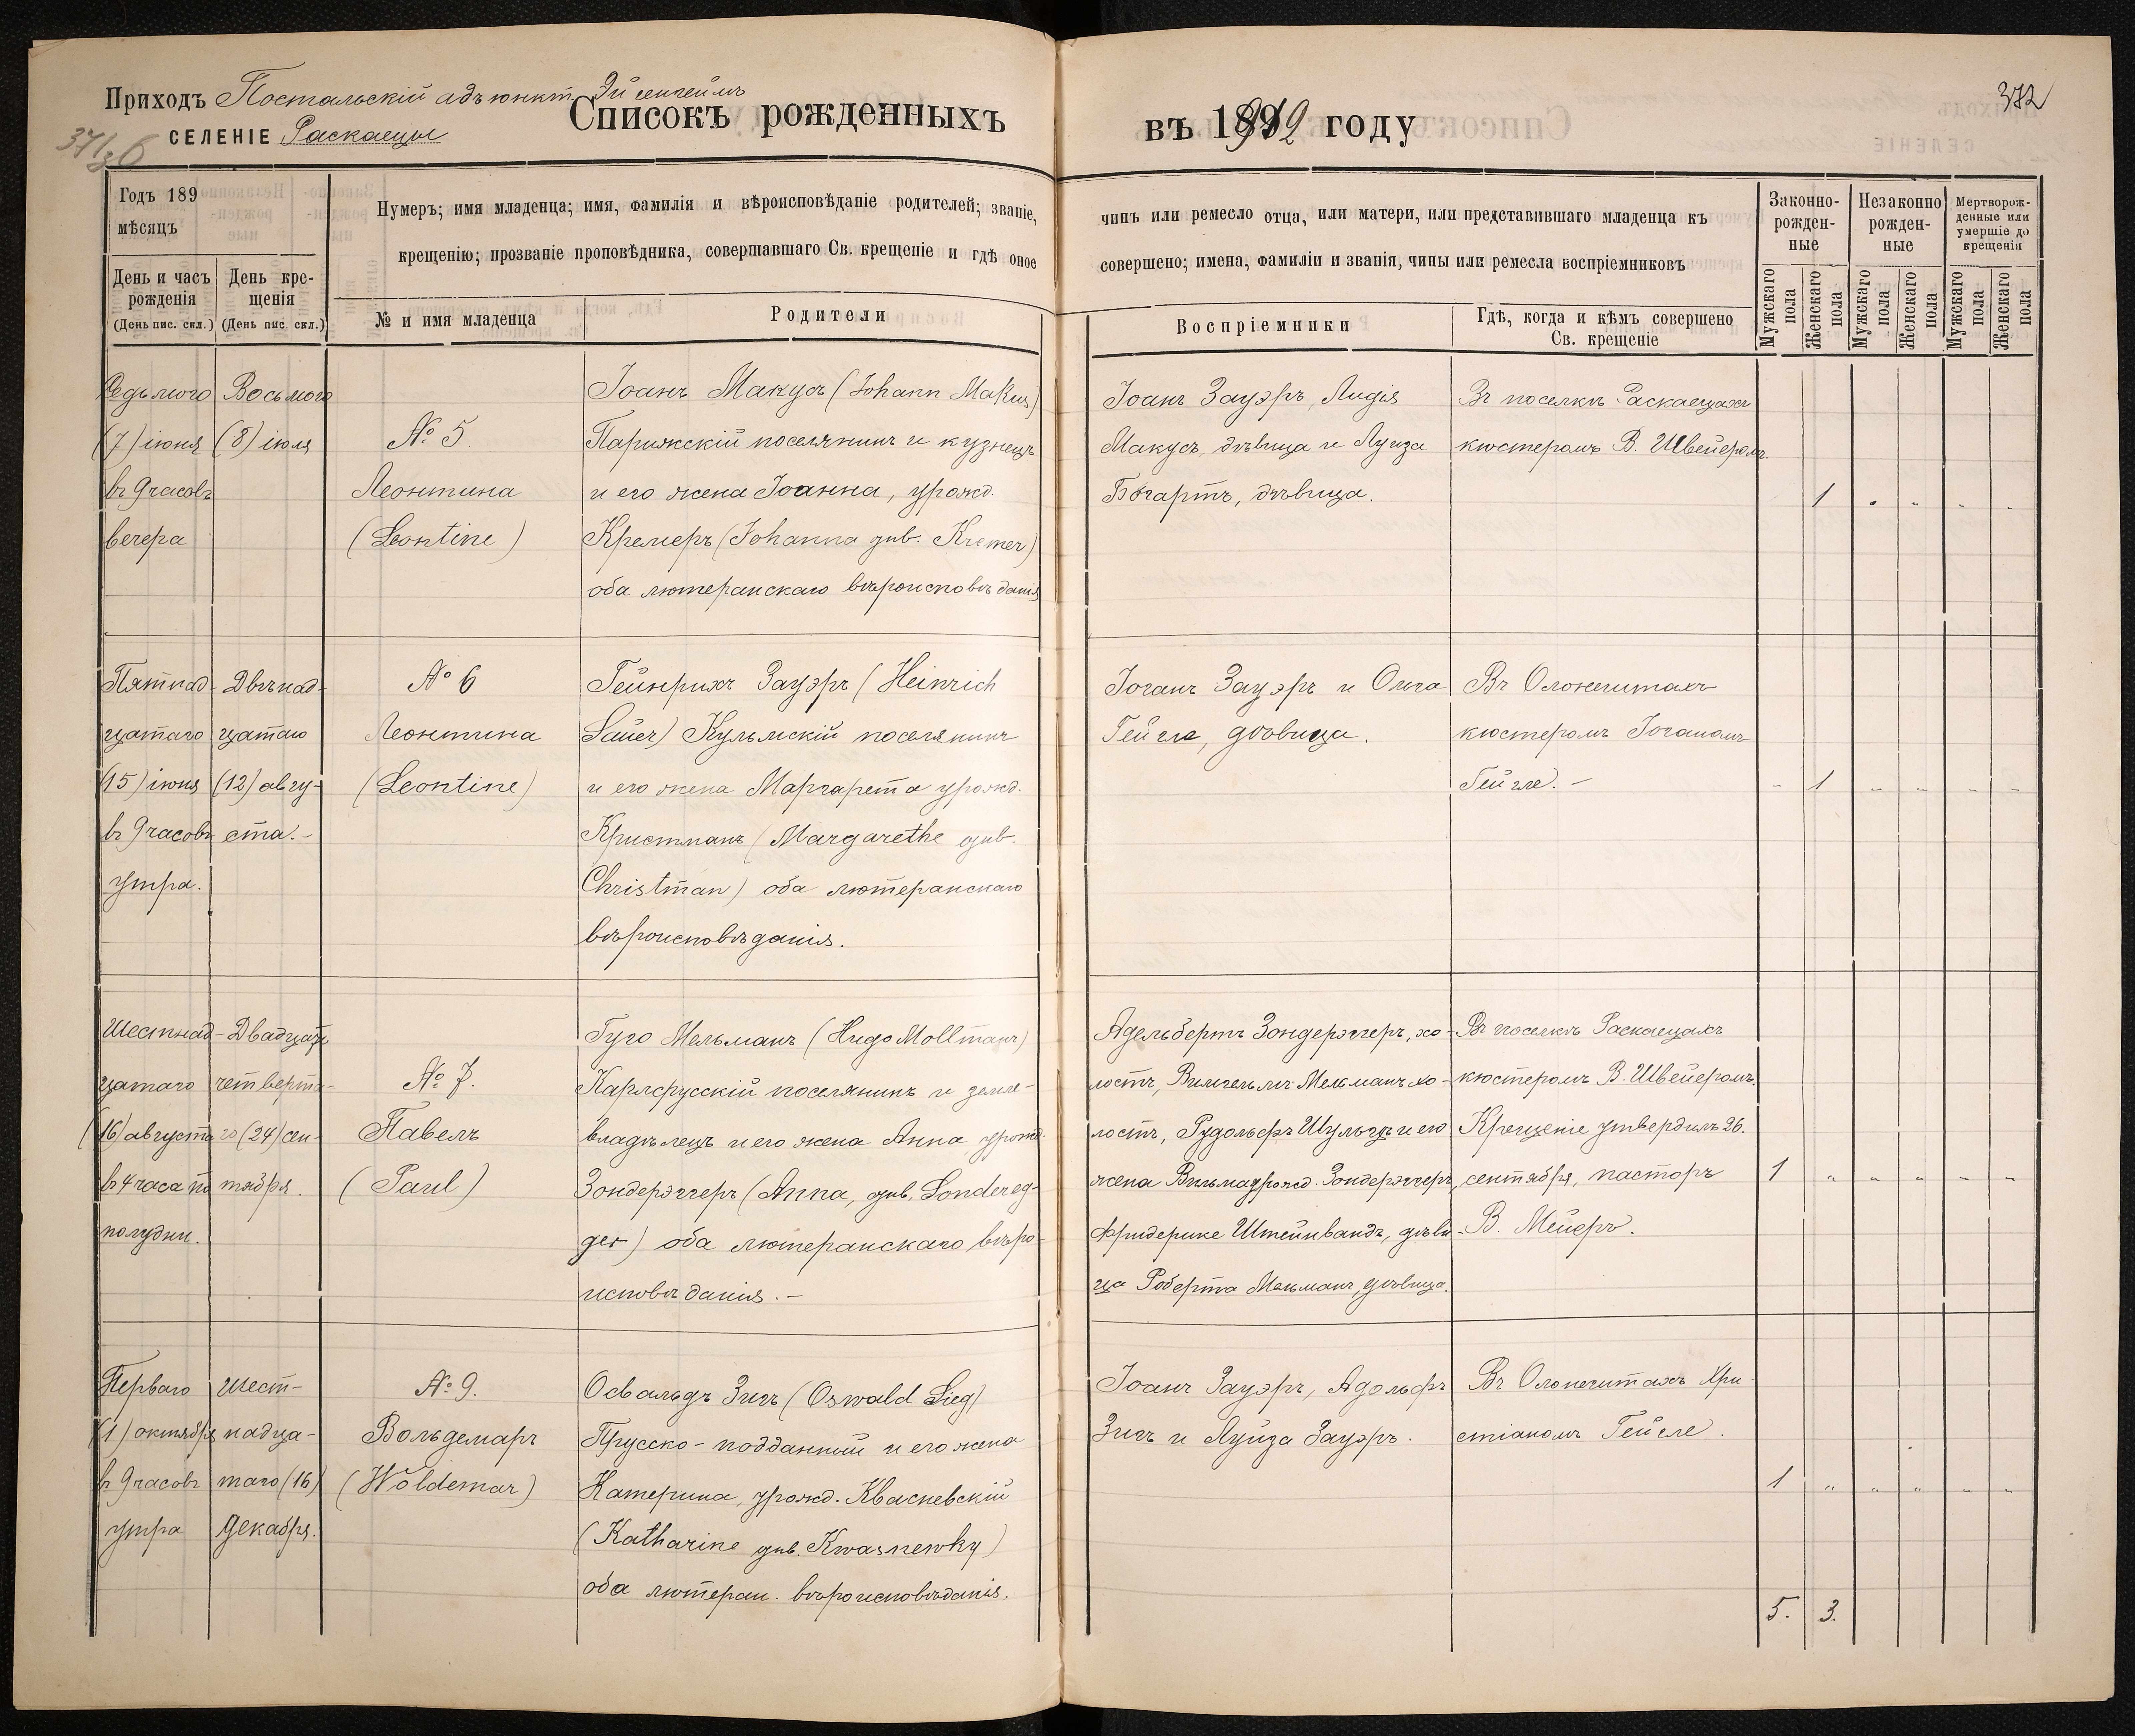 Приходъ Постальскій адъюнкт. Эйгенгеймъ
371/36 СЕЛЕНІЕ Раскаецы
Списокъ рожденныхъ
въ 1892 году
372
Годъ 189
мѣсяцъ
День и часъ рожденія
(День пис. скл.)
День кре-
щенія
(День пис. скл.)
Нумеръ; имя младенца; имя, фамилія и вѣроисповѣданіе родителей; званіе,
крещенію; прозваніе проповѣдника, совершавшаго Св. крещеніе и гдѣ оное
№ и имя младенца
Родители
чинъ или ремесло отца, или матери, или представившаго младенца къ
совершено; имена, фамиліи и званія, чины или ремесла воспріемниковъ
Воспріемники
Гдѣ, когда и кѣмъ совершено
Св. крещеніе
Законно-
рожден-
ные
Незаконно
рожден-
ные
Мертворож-
денные или
умершіе до
крещенія
Мужскаго пола
Женскаго пола
Мужскаго пола
Женскаго пола
Мужскаго пола
Женскаго пола
Седьмого
(7) іюня
въ 9 часовъ
вечера
Восьмого
(8) іюля
№ 5.
Леонтина
(Leontine)
Іоанъ Макусъ (Johann Makus)
Парижскій поселянинъ и кузнецъ
и его жена Іоанна, урожд.
Кремеръ (Johanna див. Kremer)
оба лютеранскаго вѣроисповѣданія
Іоанъ Зауэръ, Лидія
Макусъ, дѣвица и Луиза
Богартъ, дѣвица.
Въ поселкѣ Раскаецахъ
кюстеромъ В. Швейеромъ.
1
Пятнад-
цатаго
(15) іюня
въ 9 часовъ
утра.
Двѣнад-
цатаго
(12) авгу-
ста.-
№ 6
Леонтина
(Leontine)
Гейнрихъ Зауэръ (Heinrich
Sauer) Кульмскій поселянинъ
и его жена Маргарета урожд.
Кристманъ (Margarethe див.
Christman) оба лютеранскаго
вѣроисповѣданія.
Іоганъ Зауэръ и Ольга
Гейгле, дѣвица.
Въ Олонештахъ
кюстеромъ Іоганомъ
Гейгле.-
1
Шестнад-
цатаго
(16) августа
въ 4 часа по
полудни.
Двадцать
четверта-
го (24) сен-
тября.
№ 7.
Павелъ
(Paul)
Гуго Мельманъ (Hugo Mollmann)
Карлсрусскій поселянинъ и земле-
владѣлецъ и его жена Анна урожд.
Зондерэггеръ (Anna, див. Sondereg-
ger) оба лютеранскаго вѣро-
исповѣданія.-
Адельбертъ Зондерэггеръ, хо-
лостъ, Вильгельмъ Мельманъ хо-
лостъ, Рудольфъ Шульцъ и его
жена Вильма урожд. Зондерэггеръ,
Фридерике Штейнвандъ, дѣви-
ца Роберта Мельманъ, дѣвица.
Въ поселкѣ Раскаецахъ
кюстеромъ В. Швейеромъ.
Крещеніе утвердилъ 26.
сентября, пасторъ
В. Мейеръ.
1
Перваго
(1) октября
въ 9 часовъ
утра
Шест-
надца-
таго (16)
декабря.
№ 9.
Вольдемаръ
(Woldemar)
Освальдъ Зигъ (Oswald Sieg)
Прусско-подданный и его жена
Катерина, урожд. Квасневскій
(Katharine див. Kwasnewky)
оба лютеран. вѣроисповѣданія.
Іоанъ Зауэръ, Адольфъ
Зигъ и Луиза Зауэръ.
Въ Олонештахъ Хри-
стіаномъ Гейгле.
1
5. 3.